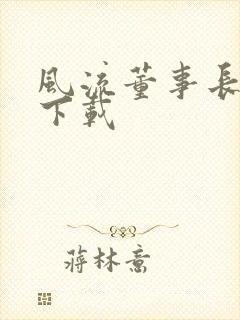 風流董事長
下載
蔣林意